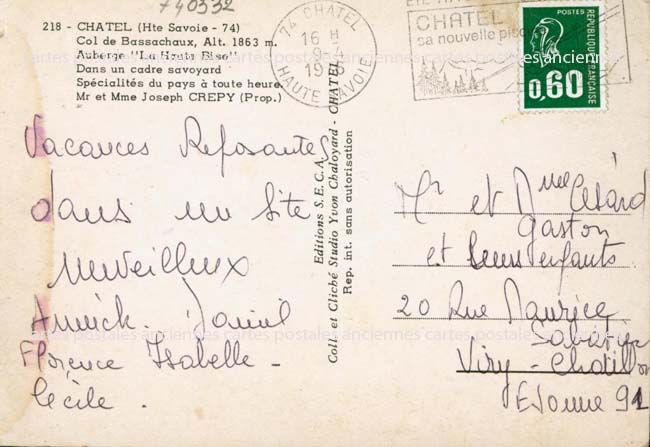 740332
218 - CHATEL (Hte Savoie - 74)
Col de Bassachaux, Alt. 1863 m.
Auberge "La Haute Bise"
Dans un cadre savoyard
Spécialités du pays à toute heure
Mr et Mme Joseph CREPY (Prop.)
74 CHATEL
16 H
9-4
HAUTE SAVOIE
CHATEL
sa nouvelle
POSTES
REPUBLIQUE FRANÇAISE
0,60
Vacances Reposantes
dans un site
merveilleux
Annick. Daniel
Florence Isabelle -
Cécile .
Editions S.E.C.A.
Coll. et Cliché Studio Yvon Chaloyard - CHATEL
Rep. int. sans autorisation
Mr et Mme Césard
Gaston
et Leurs enfants
20 Rue Maurice
Sabatier
Viry - Chatillon
Essonne 91
cartes postales anciennes cartes postales anciennes cartes postales anciennes